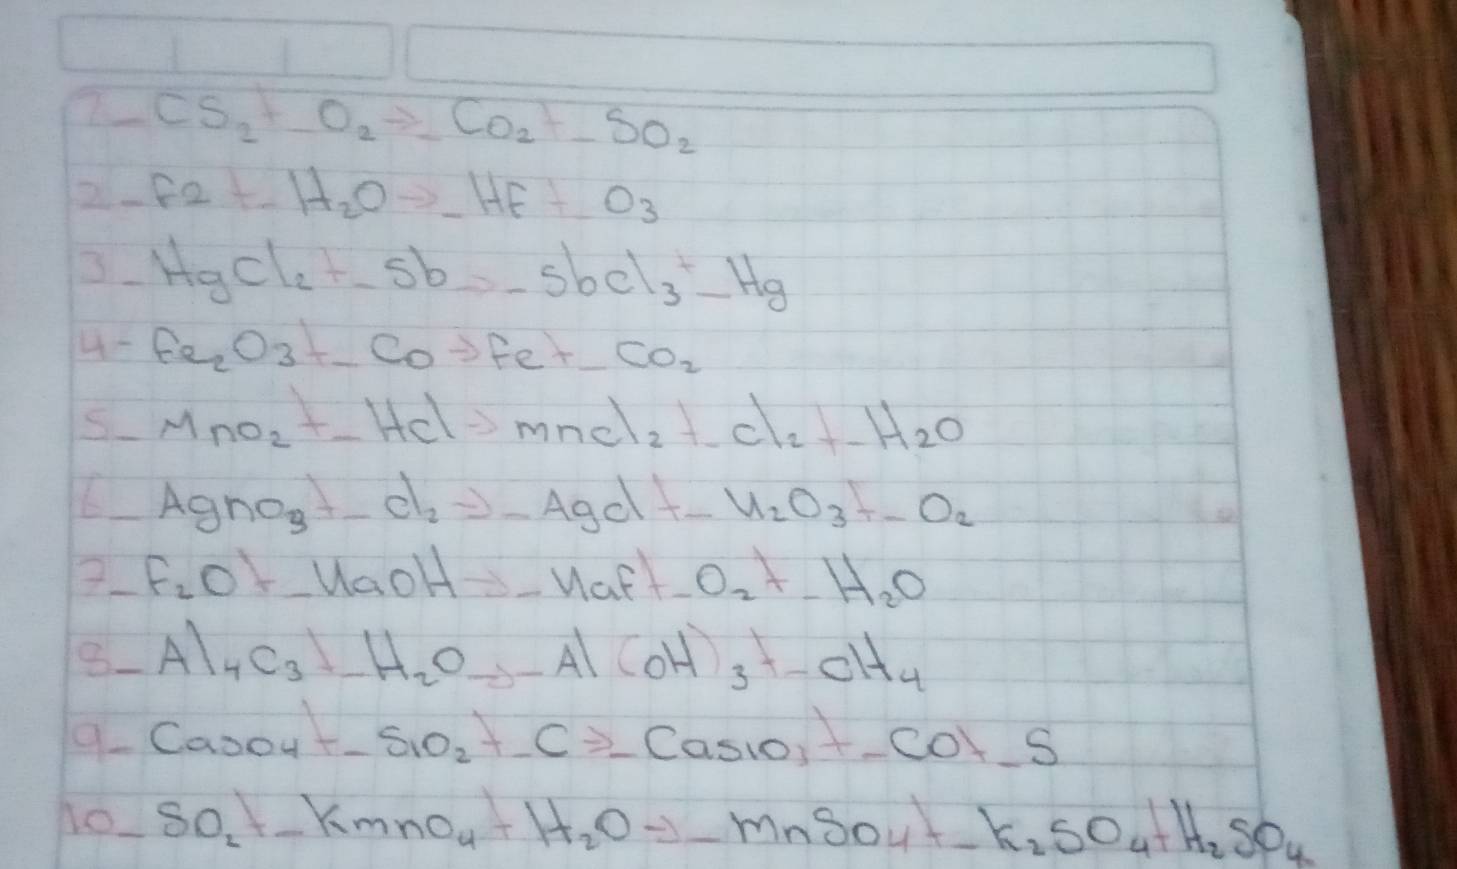 1_ CS₂ + _ O₂ → _ CO₂ + _ SO₂
2_ F2 + _ H₂O → _ HF + _ O₃
3_ HgCl₂ + _ Sb → _ SbCl₃ + _ Hg
4- Fe₂O₃ + _ CO → Fe + _ CO₂
5_ MnO₂ + _ HCl → mnCl₂ + _ Cl₂ + _ H₂O
6_ AgnO₃ + _ Cl₂ → _ AgCl + _ N₂O₃ + _ O₂
7_ F₂O + _ NaOH → _ NaF + _ O₂ + _ H₂O
8_ Al₄C₃ + _ H₂O → _ Al(OH)₃ + _ CH₄
9_ CaSO4 + _ SiO₂ + _ C → _ CaSiO₃ + _ CO + _ S
10_ SO₂ + _ KmnO₄ + H₂O → _ mnSO4 + _ K₂SO₄ + H₂SO₄